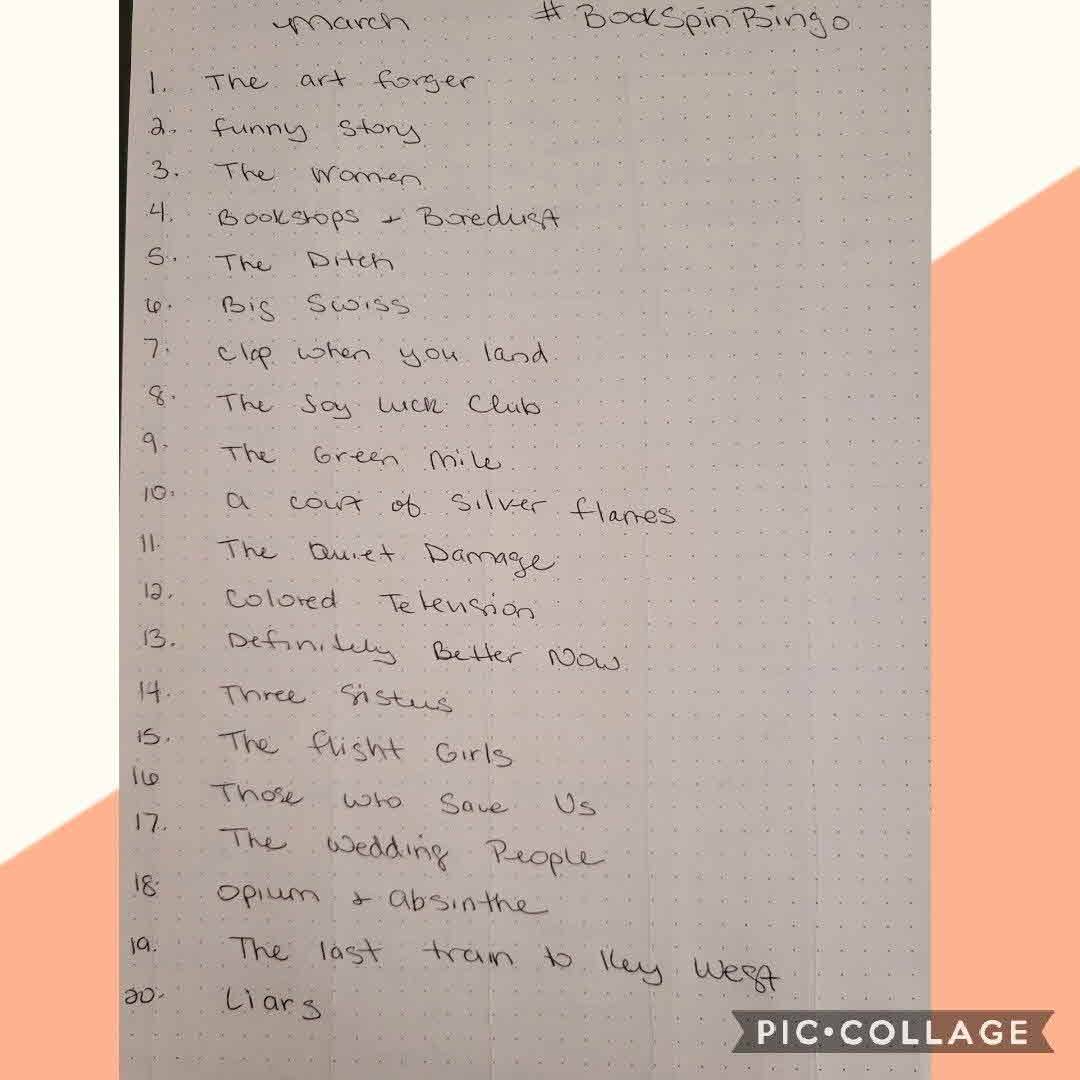 March #BookSpinBingo
1. The art forger
2. funny Story
3. The Women
4. Bookstops + Boredust
5. The Ditch
6. Big Swiss
7. Clap when you land
8. The Joy Luck Club
9. The Green Mile
10. a court of Silver flames
11. The Quiet Damage
12. Colored Television
13. Definitely Better Now
14. Three Sisters
15. The flight Girls
16 Those who Save Us
17. The Wedding People
18. Opium + absinthe
19. The last train to Key West
20. Liars
PIC•COLLAGE